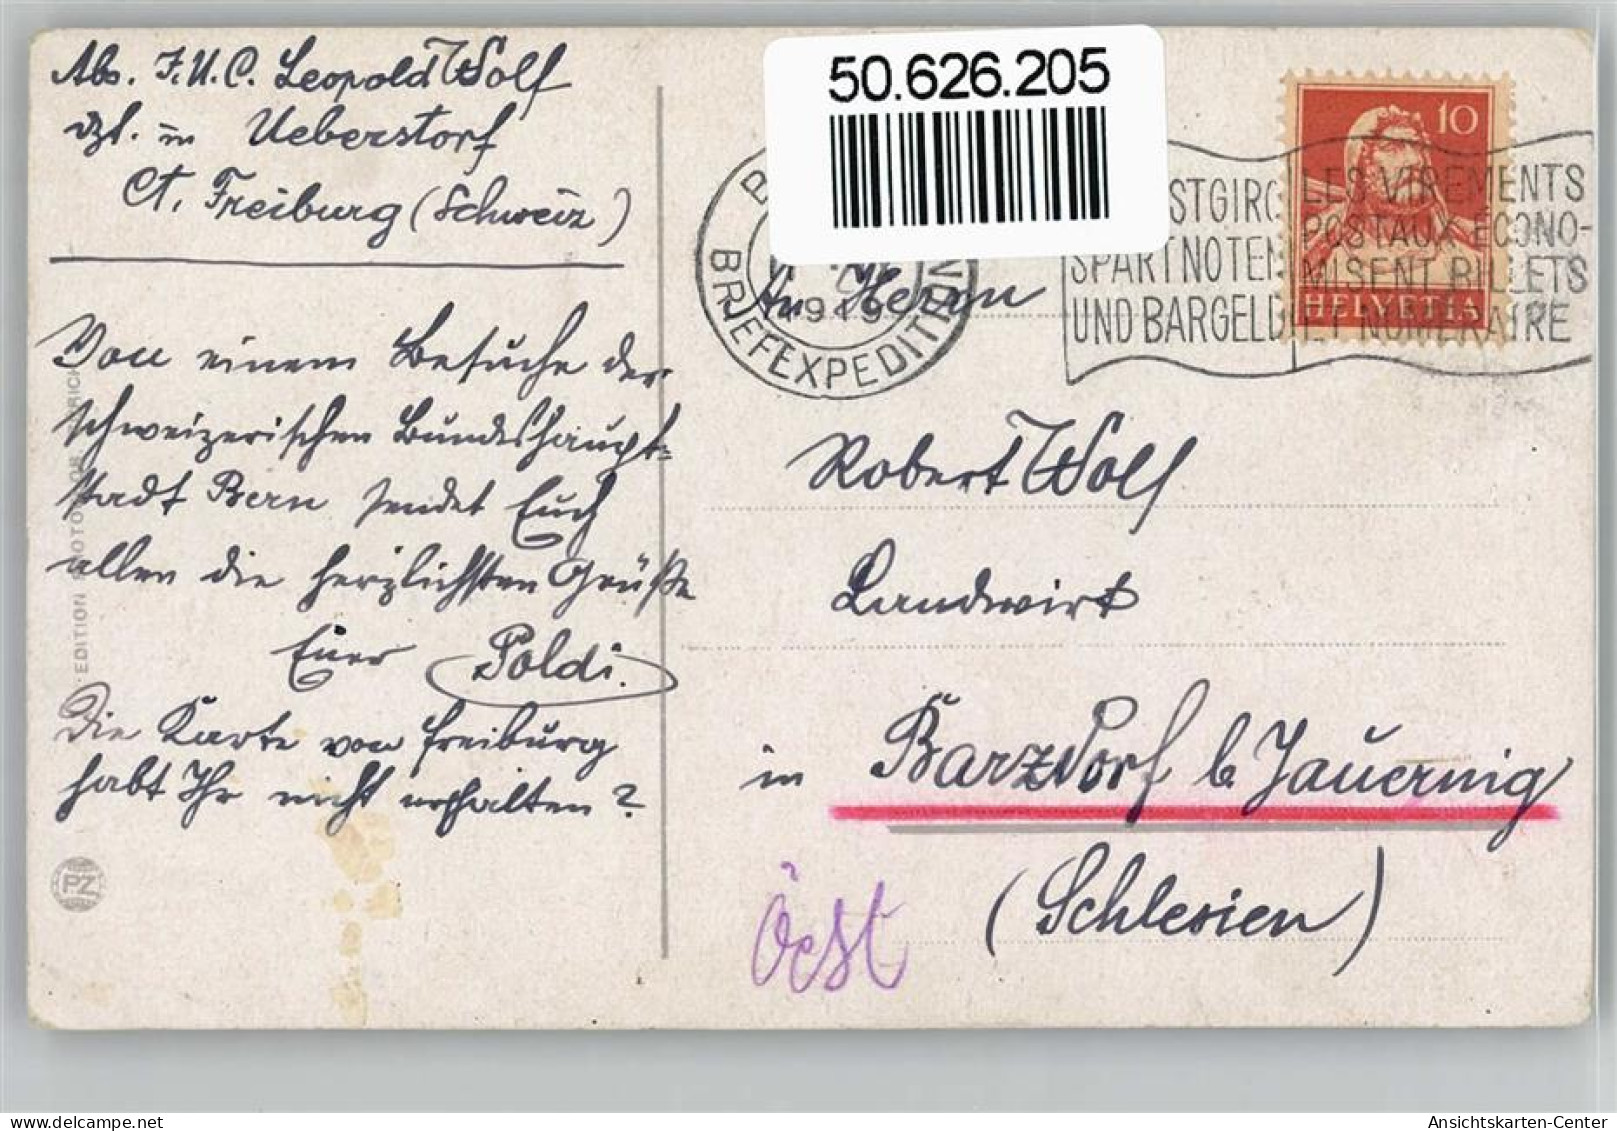 Abs. F.U.C. Leopold Wolf
dzt. in Ueberstorf
Ct. Freiburg (Schweiz)
Von einem Besuche der
schweizerischen Bundeshaupt-
stadt Bern sendet Euch
allen die herzlichsten Grüße
Euer Poldi.
Die Karte von Freiburg
habt Ihr nicht erhalten?
EDITION
PZ
50.626.205
BRIEFEXPEDITION
1919
STGIRO
SPART NOTEN
UND BARGELD
LES VIREMENTS
POSTAUX ECONO-
MISENT BILLETS
ET NUMERAIRE
10
HELVETIA
An Herrn
Robert Wolf
Landwirt
in Barzdorf b. Jauernig
(Schlesien)
Öest
Ansichtskarten-Center